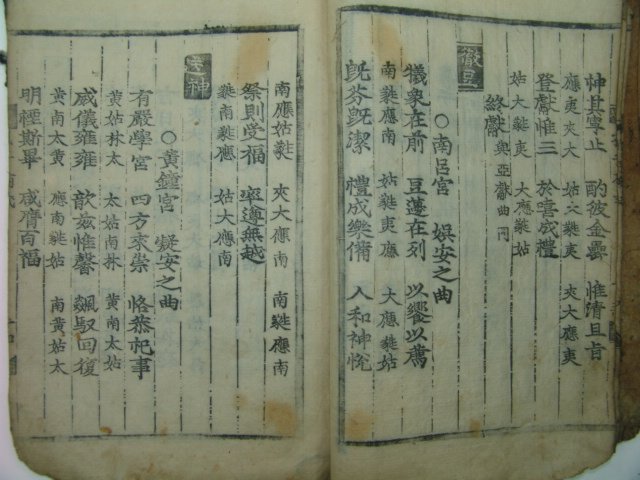 神其寧止 酌彼金罍 惟清且旨
應夷夾大 姑大蕤夷 夾大應夷
登獻惟三 於嘻成禮
姑大蕤夷 大應蕤姑
終獻 與亞獻曲同
徹豆
○南呂宮 娛安之曲
犧象在前 豆籩在列 以饗以薦
南蕤姑應 姑蕤夷應 大應蕤姑
旣芬旣潔 禮成樂備 人和神悅
南應姑蕤 夾大應南 南蕤應南
祭則受福 率遵無越
蕤南蕤應 姑大應南
送神
○黃鍾宮 凝安之曲
有嚴學宮 四方來崇 恪恭祀事
黃姑林太 太姑南林 黃南太姑
威儀雍雍 歆玆惟馨 飇馭回復
黃南太黃 應南蕤姑 南黃姑太
明禋斯畢 咸膺百福